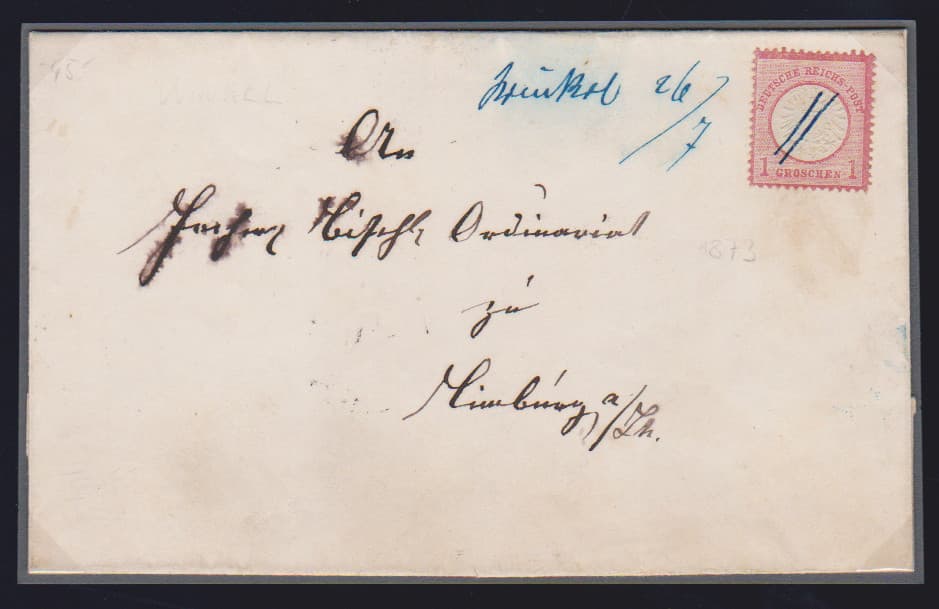 15
WINKEL
Winkel 26/7
DEUTSCHE REICHS-POST
1 GROSCHEN 1
An
Bischl Ordinariat
1873
zu
Limburg a/Lh.